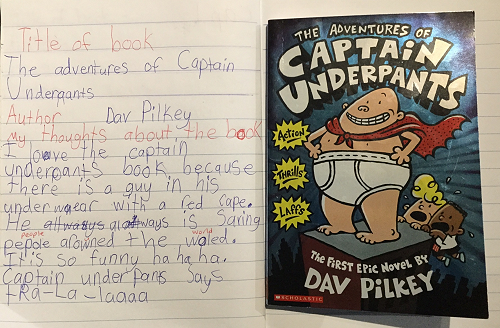 Title of book
The adventures of Captain
Underpants
Author Dav Pilkey
my thoughts about the book
I love the captain
underpants book because
there is a guy in his
underwear with a red cape.
He always is saring
people
world
pepole arowned the waled.
It's so funny ha ha ha.
Captain underpans says
tRa-La-laaaa
THE ADVENTURES OF
CAPTAIN
UNDERPANTS
ACTION
THRILLS
LAFFS
THE FIRST EPIC NOVEL BY
DAV PILKEY
SCHOLASTIC